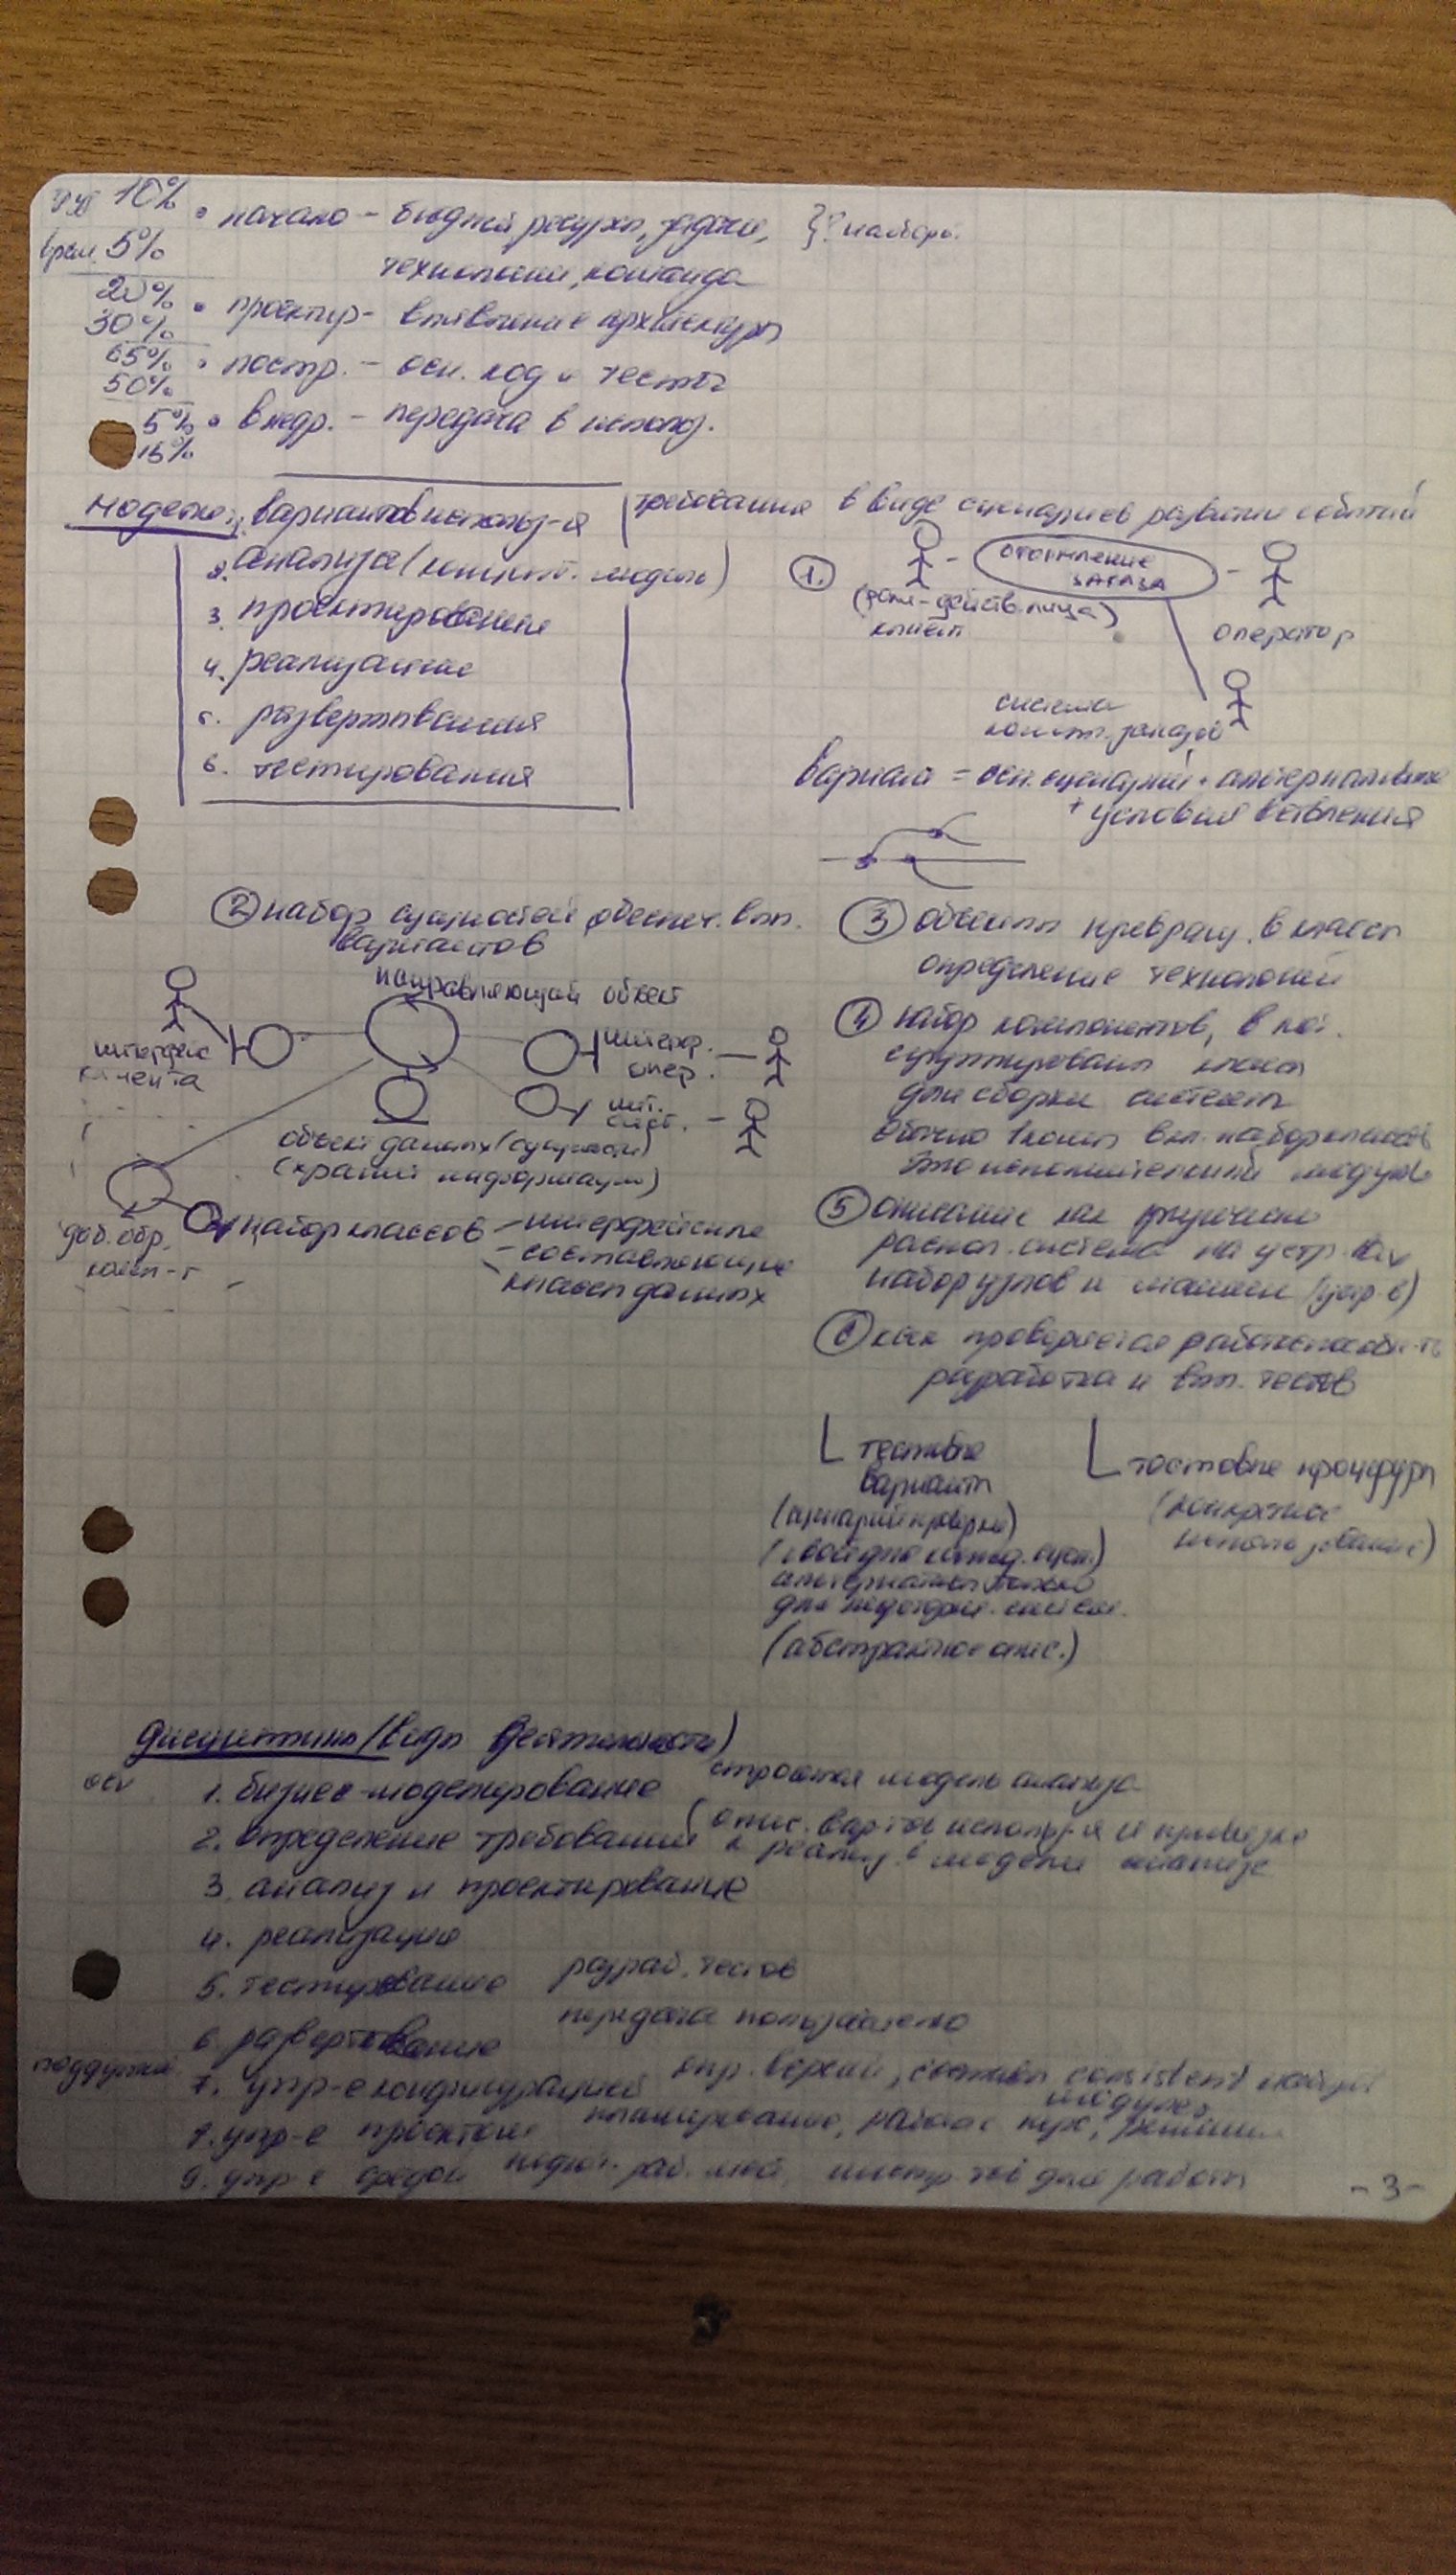 10%
• начало – бюджет, ресурсы, задачи,
врем. 5%
технологии, команда
20%
• проектир – выявление архитектуры
30%
65%
• постр. – осн. код и тесты
50%
5%
• внедр. – передача в использ.
15%
Модели: 1. вариантов использ-я
требования в виде сценариев развития событий
2. анализа (концепт. модель)
3. проектирования
4. реализации
5. развертывания
6. тестирования
1.
ОФОРМЛЕНИЕ
ЗАКАЗА
(роли – действ. лица)
клиент
оператор
система
вариант = осн. сценарий + альтернативные
+ условия ветвления
2 набор сущностей обеспеч. вып.
вариантов
направляющий объект
интерфейс
клиента
интерф.
опер.
инт.
сист.
объект данных (сущности)
(хранит информацию)
доб. обр.
набор классов – интерфейсные
– составляющие
классы данных
3 объекты превращ. в классы
определение технологий
4 набор компонентов, в кот.
сгруппированы классы
для сборки системы
Обычно 1 комп вкл. набор классов
Это исполнительный модуль
5 описание как физически
распол. система на устр-вах
набор узлов и машин (устр-в)
6 как проверяется работоспособн-ть
разработка и вып. тестов
тестовые
варианты
(сценарий проверки)
(абстрактное опис.)
тестовые процедуры
(конкретное
использование)
Дисциплины (виды деятельности)
осн
1. бизнес-моделирование
строится модель анализа
2. определение требований
(опис. вар-тов использ-я и привязка
к реализ. в модели анализа
3. анализ и проектирование
4. реализация
5. тестирование
разраб. тестов
6. развертывание
передача пользователю
поддерж.
7. упр-е конфигурацией
упр. версий, consistent
модулей
8. упр-е проектом
планирование,
9. упр-е средой
инстр-тов для работы
- 3 -